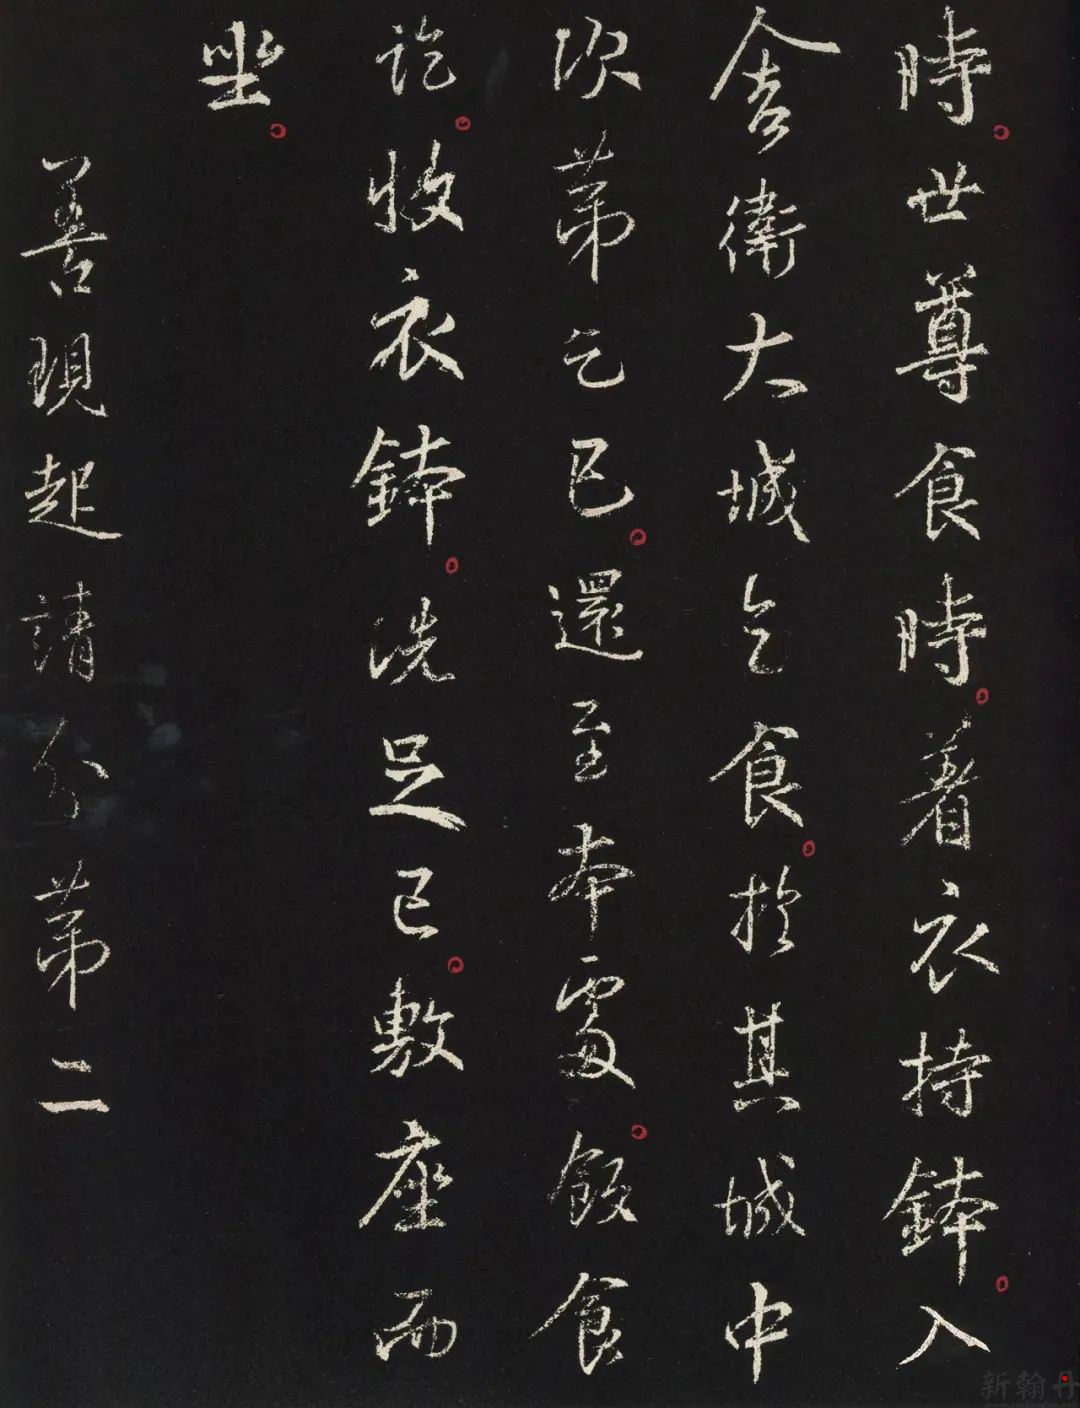 時。世尊食時。着衣持鉢。入
舍衛大城乞食。於其城中
次第乞已。還至本處。飯食
訖。收衣鉢。洗足已。敷座而
坐。
善現起請分第二
新翰丹